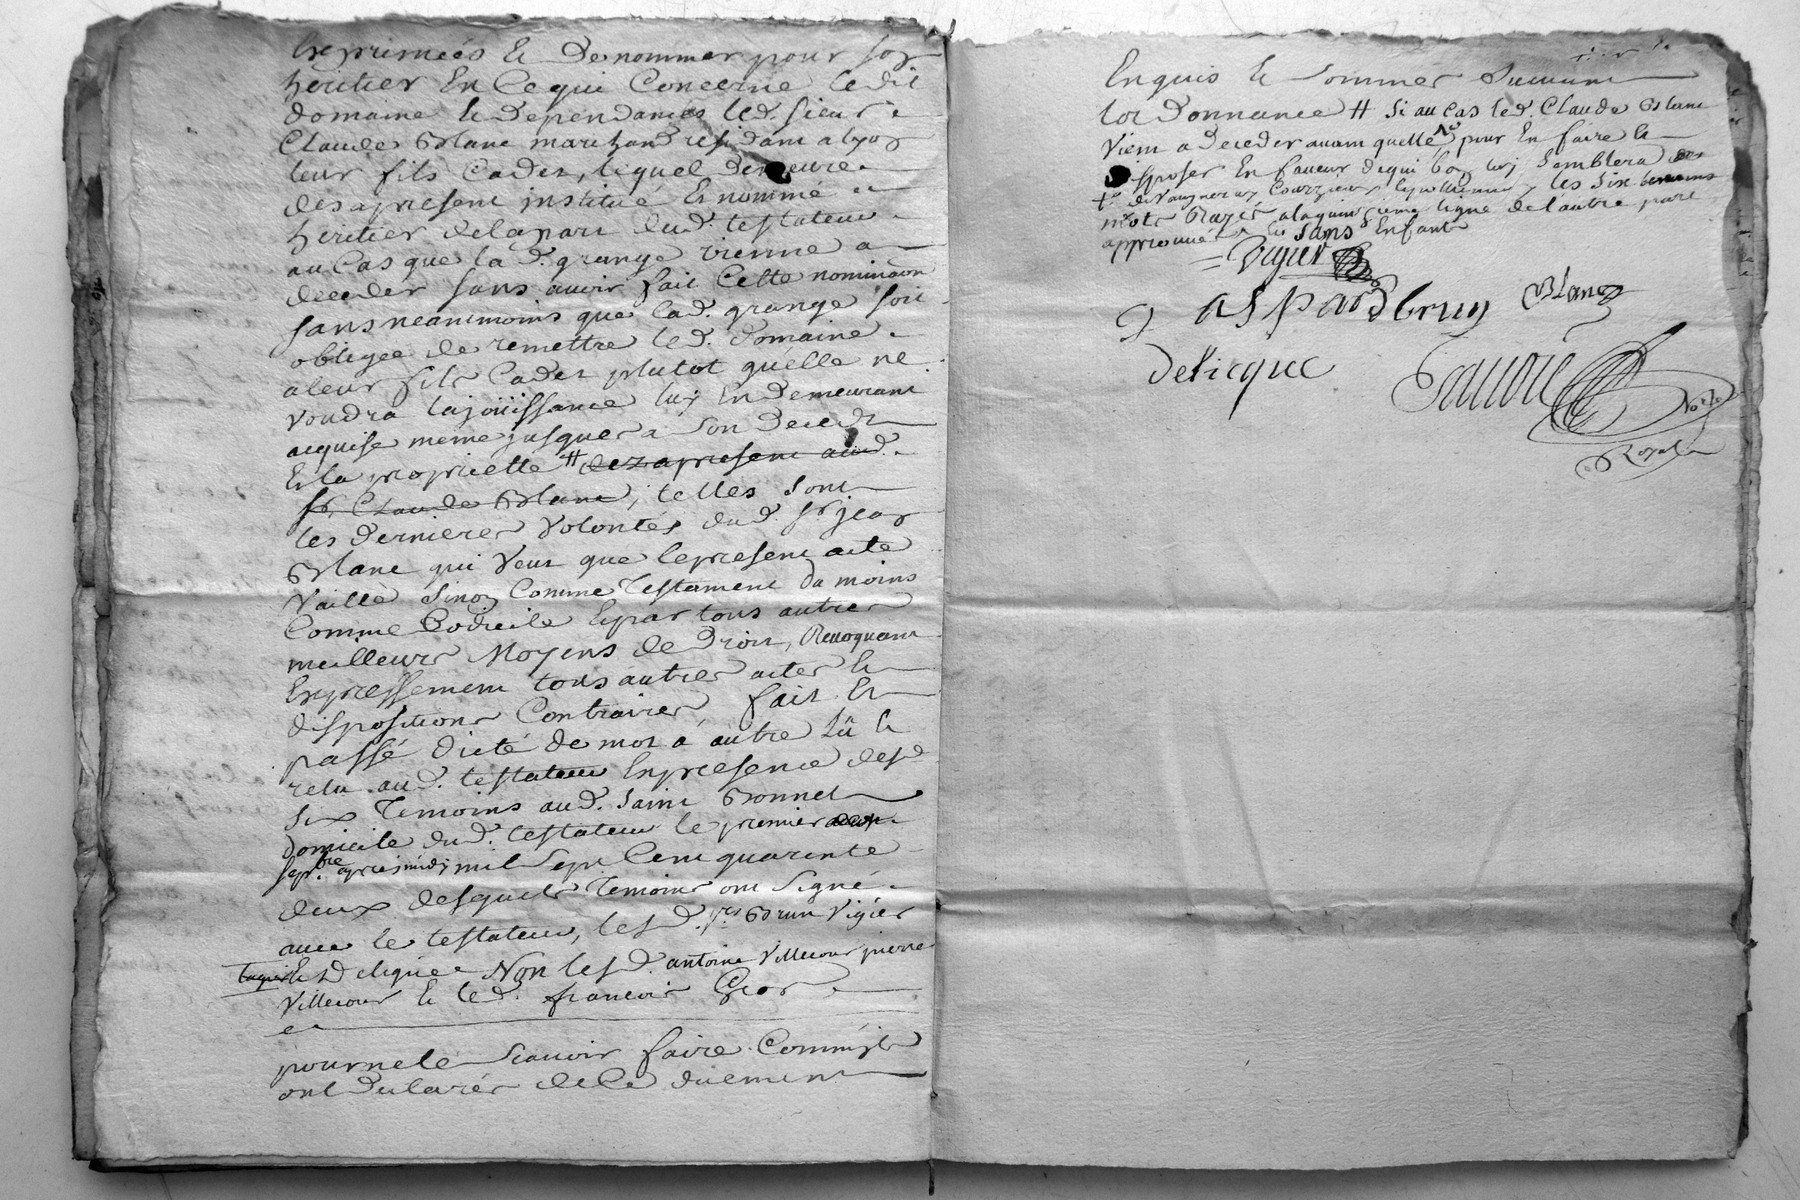 Exprimeés Et De nommer pour son
heritier En Ce qui Concerne Le dit
domaine & Dependances led. sieur
Claude Blanc marchand residant a lyon
leur fils Cadet, liquel Demeure
des apresent institué Et nommé
heritier de la part dud. testateur
au Cas que la d. grange vienne a
deceder sans avoir fait Cette nomination
sans neantmoins que lad. grange soit
obligeé de remettre led. domaine
a leur fils Cadet plutot quelle ne
voudra la joüissance luy En Demeurant
acquise meme jusques a son Deced
Et la proprietté # dez apresent aud.
Sr. Claude Blanc, telles sont
les dernieres Volontés dud. Sr jean
Blanc qui Veut que le present acte
Vaille sinon Comme Testament du moins
Comme Codicile Et par tous autres
meilleurs Moyens de Droit, Revoquant
Expressement tous autres actes Et
dispositions Contraires, fait Et
passé dicté de mot a autre Lû &
relu aud. testateur En presence desd
six Temoins aud. Saint Bonnet
domicile dud. testateur le premier
sept.bre apres midy mil sept Cent quarente
deux desquels Temoins ont signé
avec le testateur, lesd. srs Brun Vigier
Et d eliquée Non lesd. antoine Villecour pierre
Villecour & led. francois Gros
pour ne le Scavoir faire Comm'ils
ont declarés de Ce duement
Enquis & sommes Suivant
lordonnance # si au cas led. Claude Blanc
Vient a Deceder avant quelle pour En faire &
disposer En faveur de qui bon luy semblera
les six
mots Rayés a la quinzieme ligne de l'autre part
approuvés sans Enfants
= Vigier
gaspard brun Blanc
Delicque
Royal